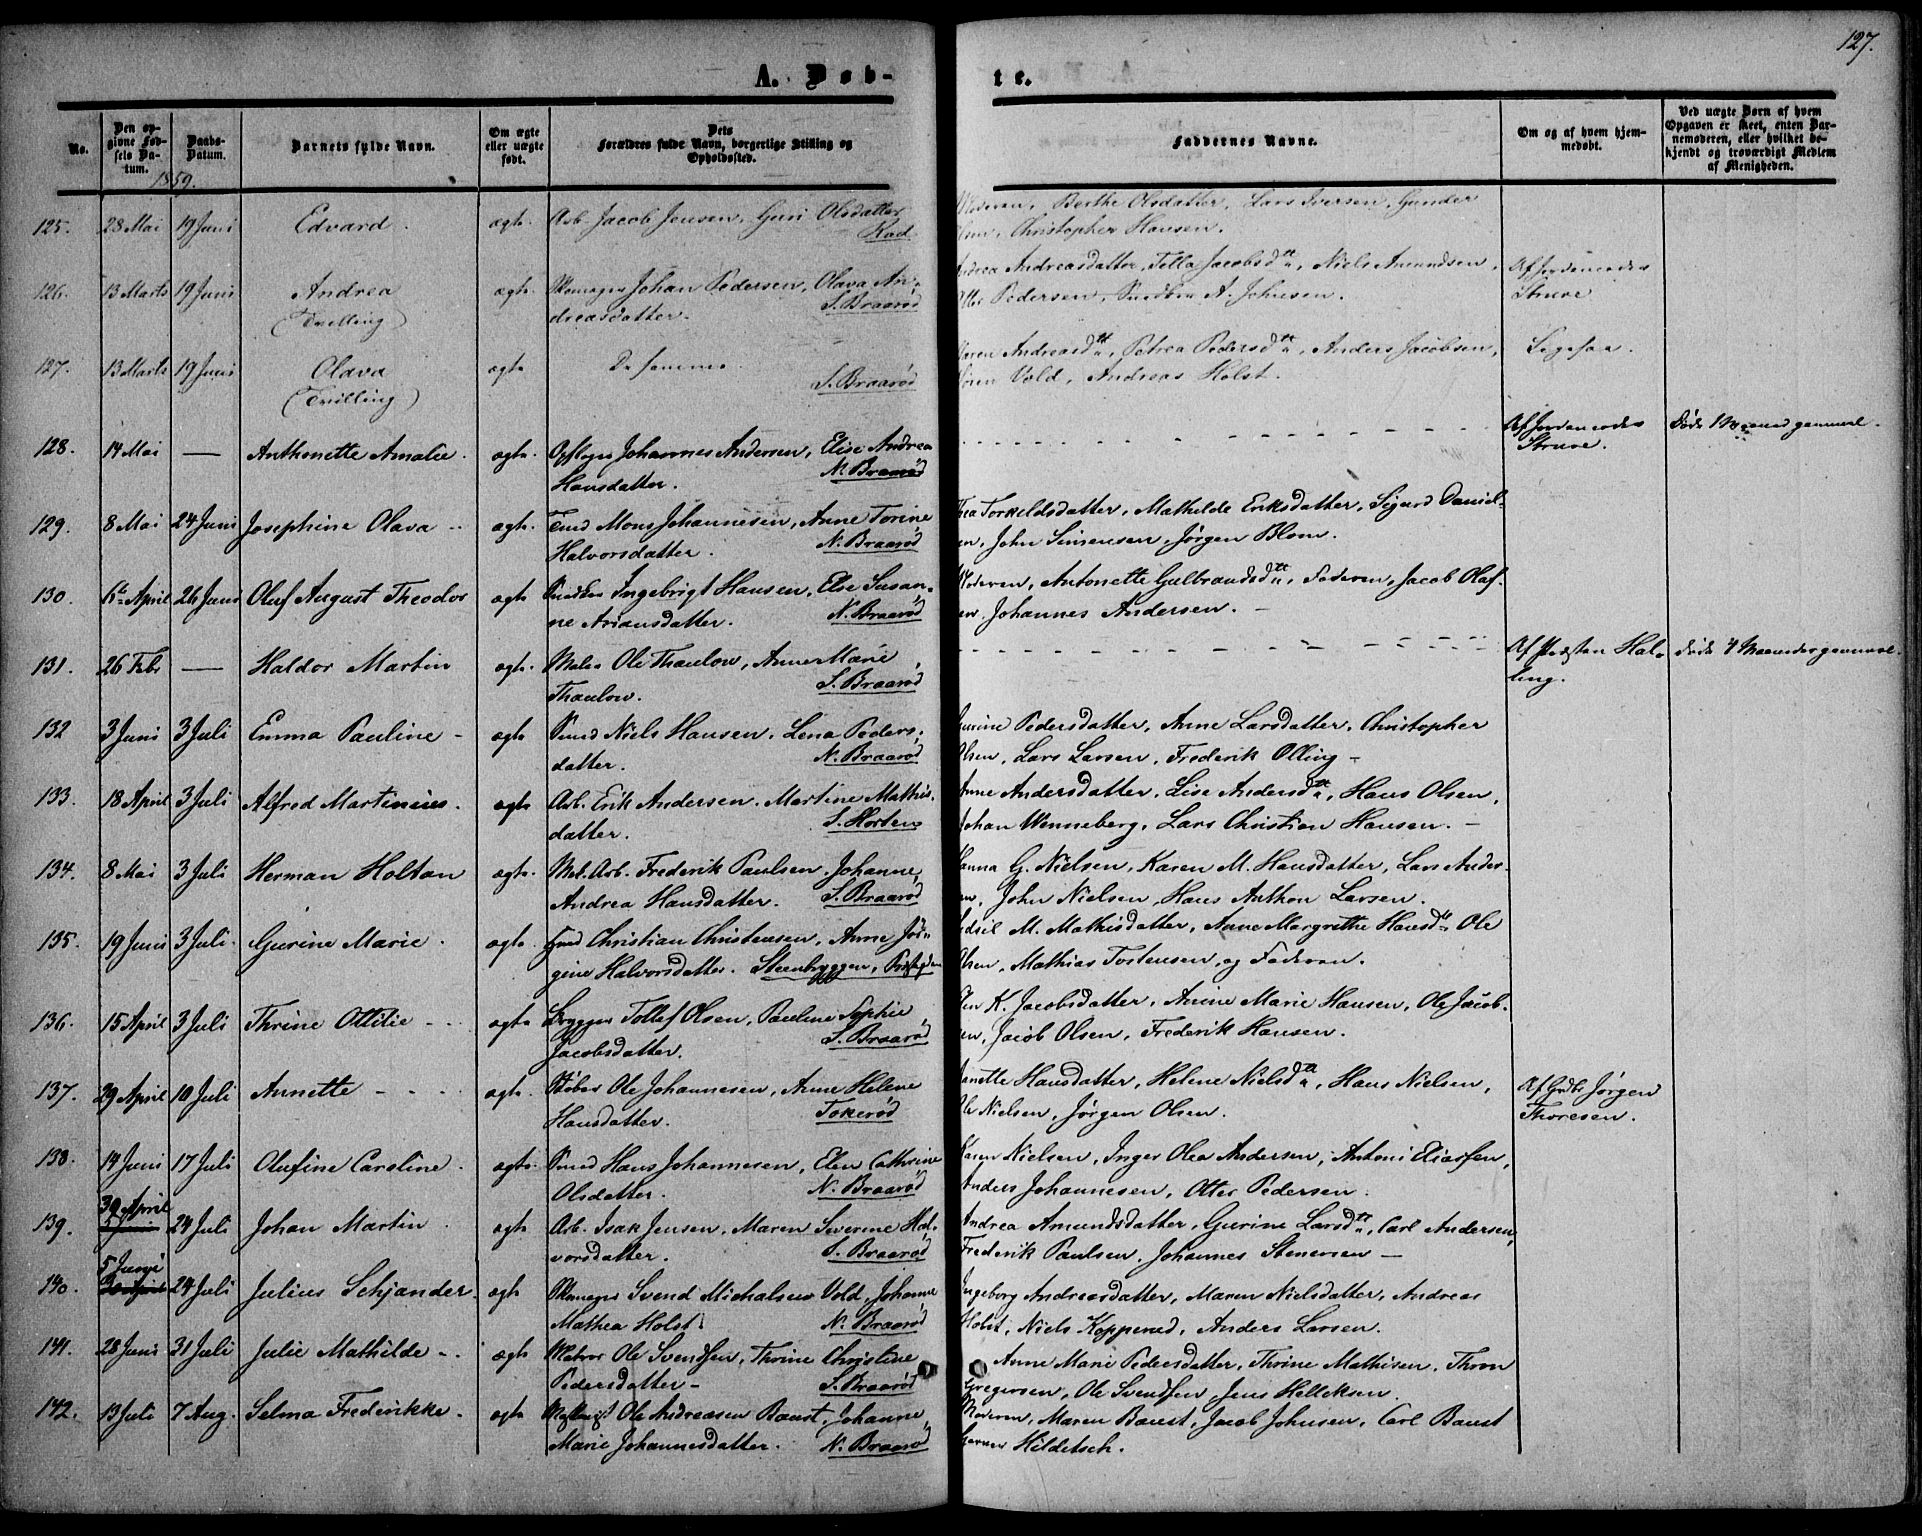 127.
A. Døb-
te.
No.
Den op-
givne Fød-
sels Da-
tum.
Daabs-
Datum.
Barnets fulde Navn.
Om ægte
eller uægte
født.
Dets
Forældres fulde Navn, borgerlige Stilling og
Opholdssted.
Faddernes Navne.
Om og af hvem hjem-
medøbt.
Ved uægte Børn af hvem
Opgaven er skeet, enten Bar-
nemoderen, eller hvilket be-
kjendt og troværdigt Medlem
af Menigheden.
1859.
125. 28 Mai 19 Juni Edvard. ægte. Arb. Jacob Jensen, Guri Olsdatter
Rød
Moderen, Berthe Olsdatter, Lars Iversen, Gunder
Olsen, Christopher Hansen.
126. 13 Marts 19 Juni Andrea ægte. Skomager Johan Pedersen, Olava An-
(Tvilling) dreasdatter. S. Braarød
Andrea Andreasdatter, Tella Jacobsdtr, Niels Amundsen, Af Jordemoder
Otter Pedersen, A. Johnsen. Struve
127. 13 Marts 19 Juni Olava ægte De samme.
(Tvilling) S. Braarød
Maren Andreasdtr, Petrea Pedersdtr, Anders Jacobsen, Ligesaa.
Søren Vold, Andreas Holst.
128. 14 Mai — Anthonette Amalie. ægte. Opsyn Johannes Andersen, Elise Andrea
Hansdatter. N. Braarød
Af Jordemoder Død 1 Maaned gammel.
Struve.
129. 8 Mai 24 Juni Josephine Olava - ægte. Tmd Mons Johannesen, Anne Torine
Halvorsdatter. N. Braarød
Thea Torkeldsdatter, Mathilde Eriksdatter, Sigurd Daniel-
sen, John Simensen, Jørgen Blom.
130. 6te April 26 Juni Oluf August Theodor ægte Snedker Ingebrigt Hansen, Else Susan-
ne Ariansdatter. N. Braarød
Moderen, Antonette Gulbrandsdtr, Faderen, Jacob Olaf-
sen, Johannes Andersen. -
131. 26 Feb — Haldor Martin ægte. Maler Ole Thaulow, Anne Marie
Thaulow. S. Braarød
Af Præsten Hal- Døde 4 Maaneder gammel.
ling.
132 3 Juni 3 Juli Emma Pauline - ægte Smed Niels Hansen, Lena Peders-
datter. N. Braarød
Gurine Pedersdatter, Anne Larsdatter, Christopher
Olsen, Lars Larsen, Frederik Olling -
133. 18 April 3 Juli Alfred Martinius. ægte Arb. Erik Andersen, Martine Mathis-
datter. S. Horten
Anne Andersdatter, Lise Andersdtr, Hans Olsen,
Johan Wenneberg, Lars Christian Hansen. -
134. 8 Mai 3 Juli Herman Holtan ægte. Mek. Arb. Frederik Paulsen, Johanne
Andrea Hansdatter. S. Braarød
Hanna G. Nielsen, Karen M. Hansdatter, Lars Ander-
sen, John Nielsen, Hans Anthon Larsen.
135. 19 Juni 3 Juli. Gurine Marie. ægte. Gmd Christian Christensen, Anne Jør-
gine Halvorsdatter. Steenbryggen,
M. Mathisdatter, Anne Margrethe Hansdtr Ole
Olsen, Mathias Tostensen, og Faderen.
136. 15 April 3 Juli Thrine Ottilie - ægte Brygger Tollef Olsen, Pauline Sophie
Jacobsdatter. S. Braarød
Elen K. Jacobsdatter, Anine Marie Hansen, Ole Jacob-
sen, Jacob Olsen, Frederik Hansen.
137. 29 April 10 Juli Annette - - - ægte. Støber Ole Johannesen, Anne Helene
Hansdatter. Tokerød
Janette Hansdatter, Helene Nielsdtr, Hans Nielsen, Af Grdbr Jørgen
Ole Nielsen, Jørgen Olsen. Thoresen.
138. 14 Juni 17 Juli Olufine Caroline. ægte. Smed Hans Johannesen, Elen Cathrine
Olsdatter. N. Braarød
Karen Nielsen, Inger Olea Andersen, Antoni Eliassen,
Anders Johannesen, Otter Pedersen.
139. 30 April 24 Juli Johan Martin. ægte Arb. Isak Jensen, Maren Severine Hal-
vorsdatter. S. Braarød
Andrea Amundsdatter, Gurine Larsdtr, Carl Andersen,
Frederik Paulsen, Johannes Stenersen -
140. 5 Juni 24 Juli Julius Schjander. ægte Skomager Svend Michalsen Vold, Johanne
Mathea Holst. N. Braarød
Ingeborg Andreasdatter, Maren Nielsdatter, Andreas
Holst, Niels Kopperud, Anders Larsen.
141. 28 Juni 31 Juli Julie Mathilde - ægte Matros Ole Svendsen, Thrine Christine
Pedersdatter - S. Braarød
Anne Marie Pedersdatter, Thrine Mathisen, Thron
Gregersen, Ole Svendsen, Jens Helleksen.
142. 13 Juli 7 Aug. Selma Frederikke. ægte Ole Andreasen Baust, Johanne
Marie Johannesdatter. N. Braarød
Moderen, Maren Baust, Jacob Johnsen, Carl Baust
Hilditsch.